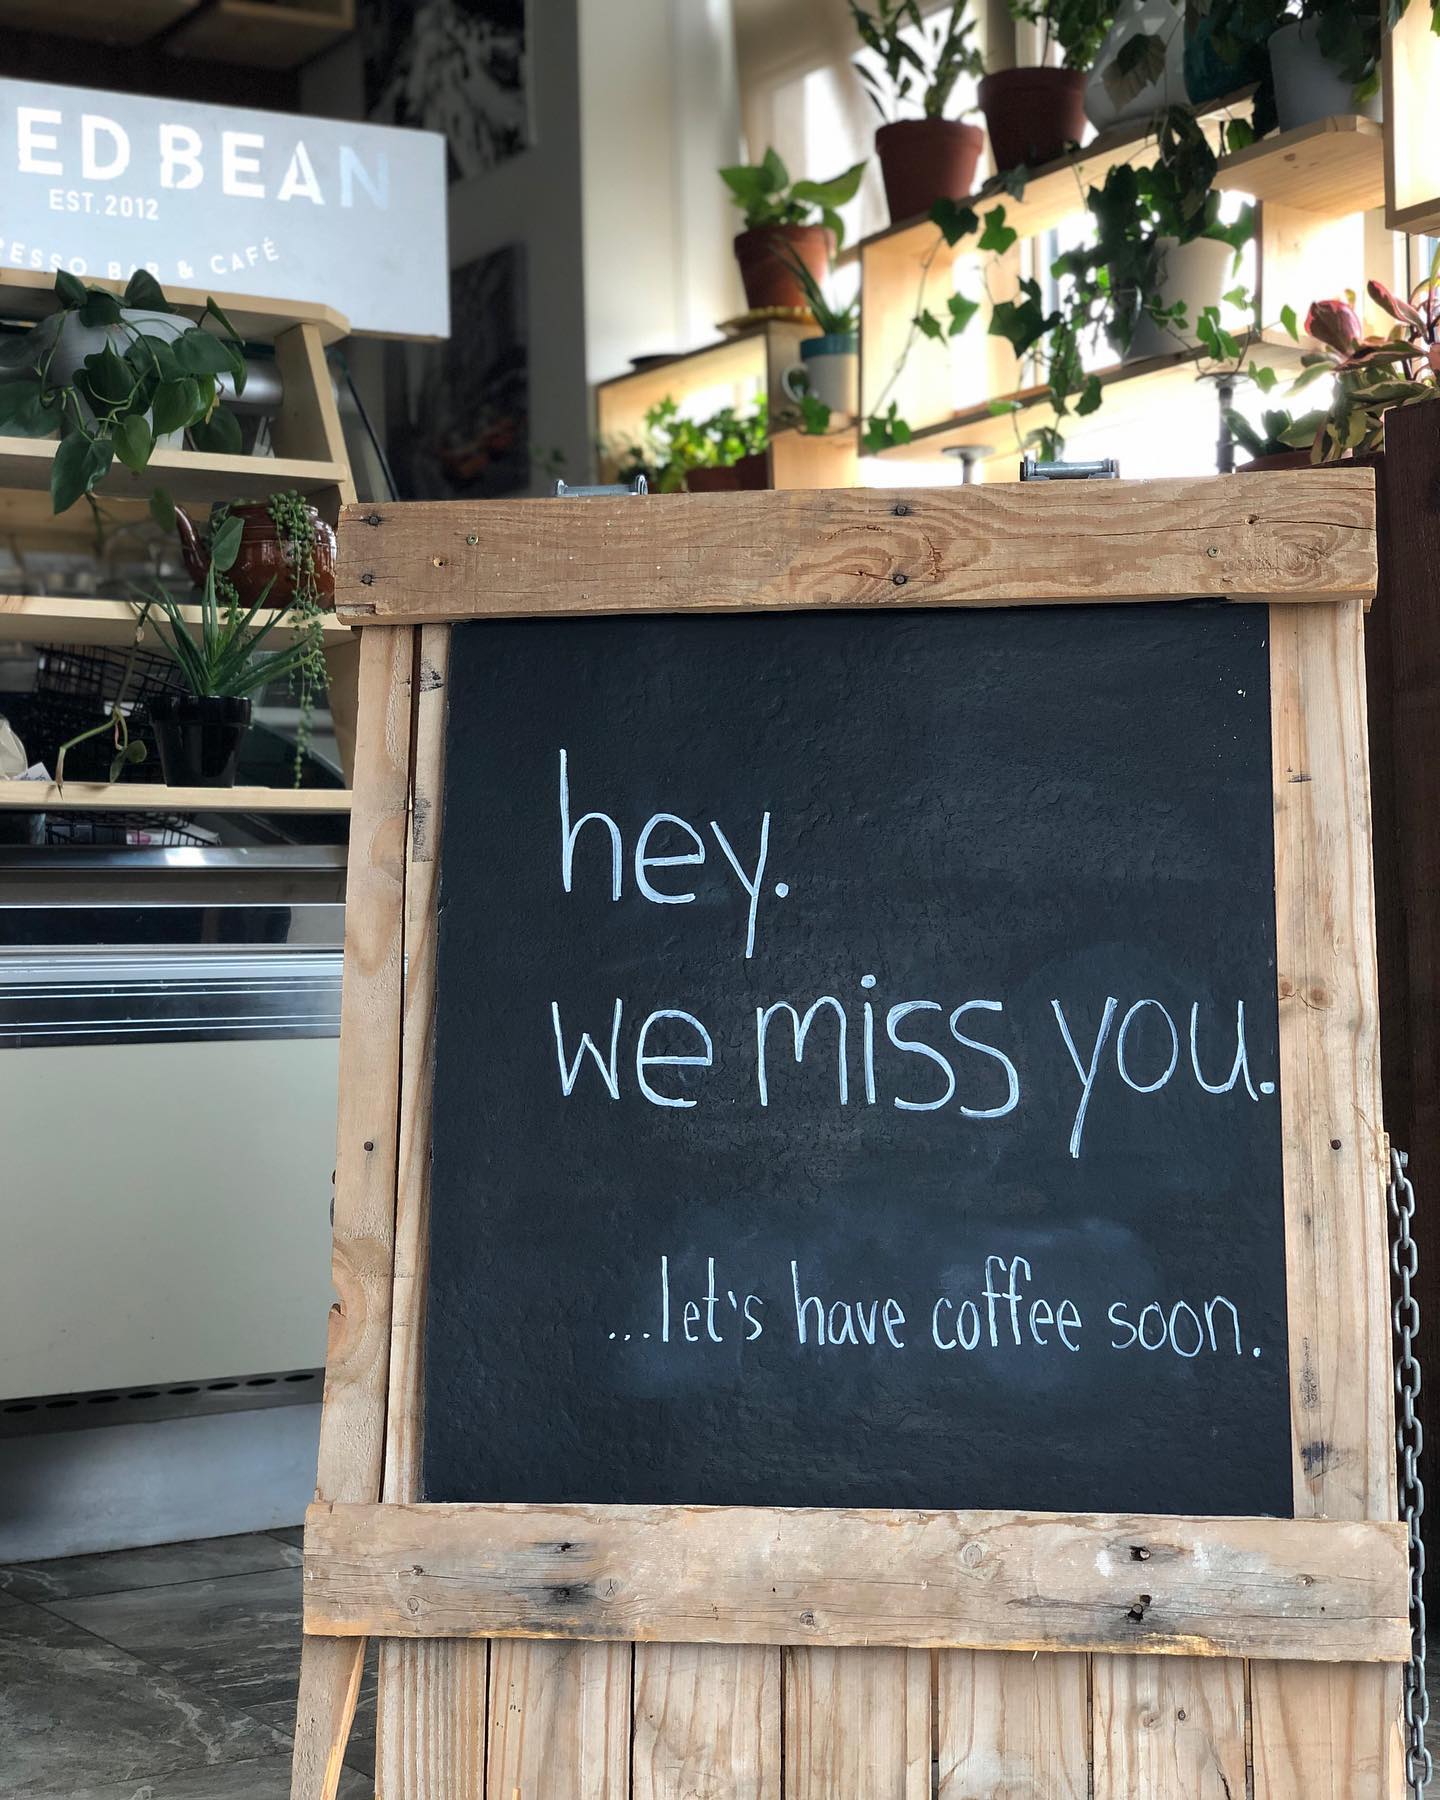 ED BEAN
EST. 2012
BAR & CAFÉ
hey.
we miss you.
...let's have coffee soon.